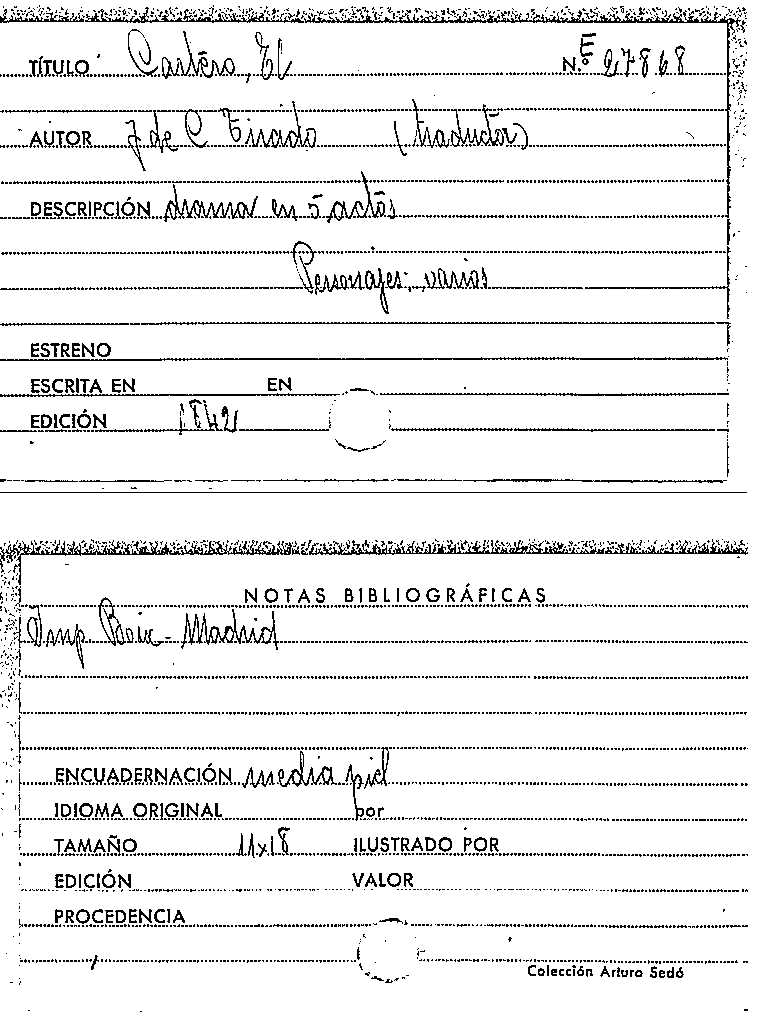 TÍTULO Cartero, El N.º E 27868
AUTOR J de C Tirado (traductor)
DESCRIPCIÓN drama en 5 actos
Personajes: varios
ESTRENO
ESCRITA EN EN
EDICIÓN 1842
NOTAS BIBLIOGRÁFICAS
Imp. Boix - Madrid
ENCUADERNACIÓN media piel
IDIOMA ORIGINAL por
TAMAÑO 11x18 ILUSTRADO POR
EDICIÓN VALOR
PROCEDENCIA
Colección Arturo Sedó